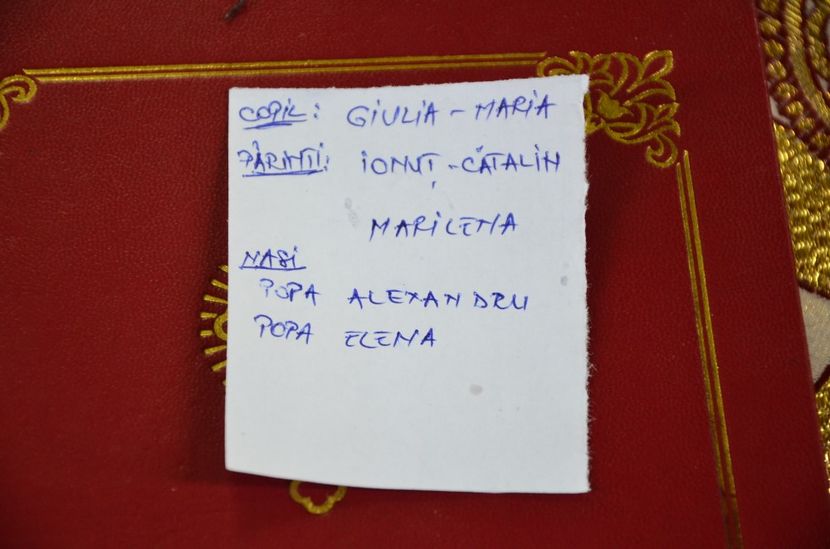 COPIL: GIULIA - MARIA
PĂRINȚI: IONUȚ - CĂTALIN
MARILENA
NAȘI
POPA ALEXANDRU
POPA ELENA